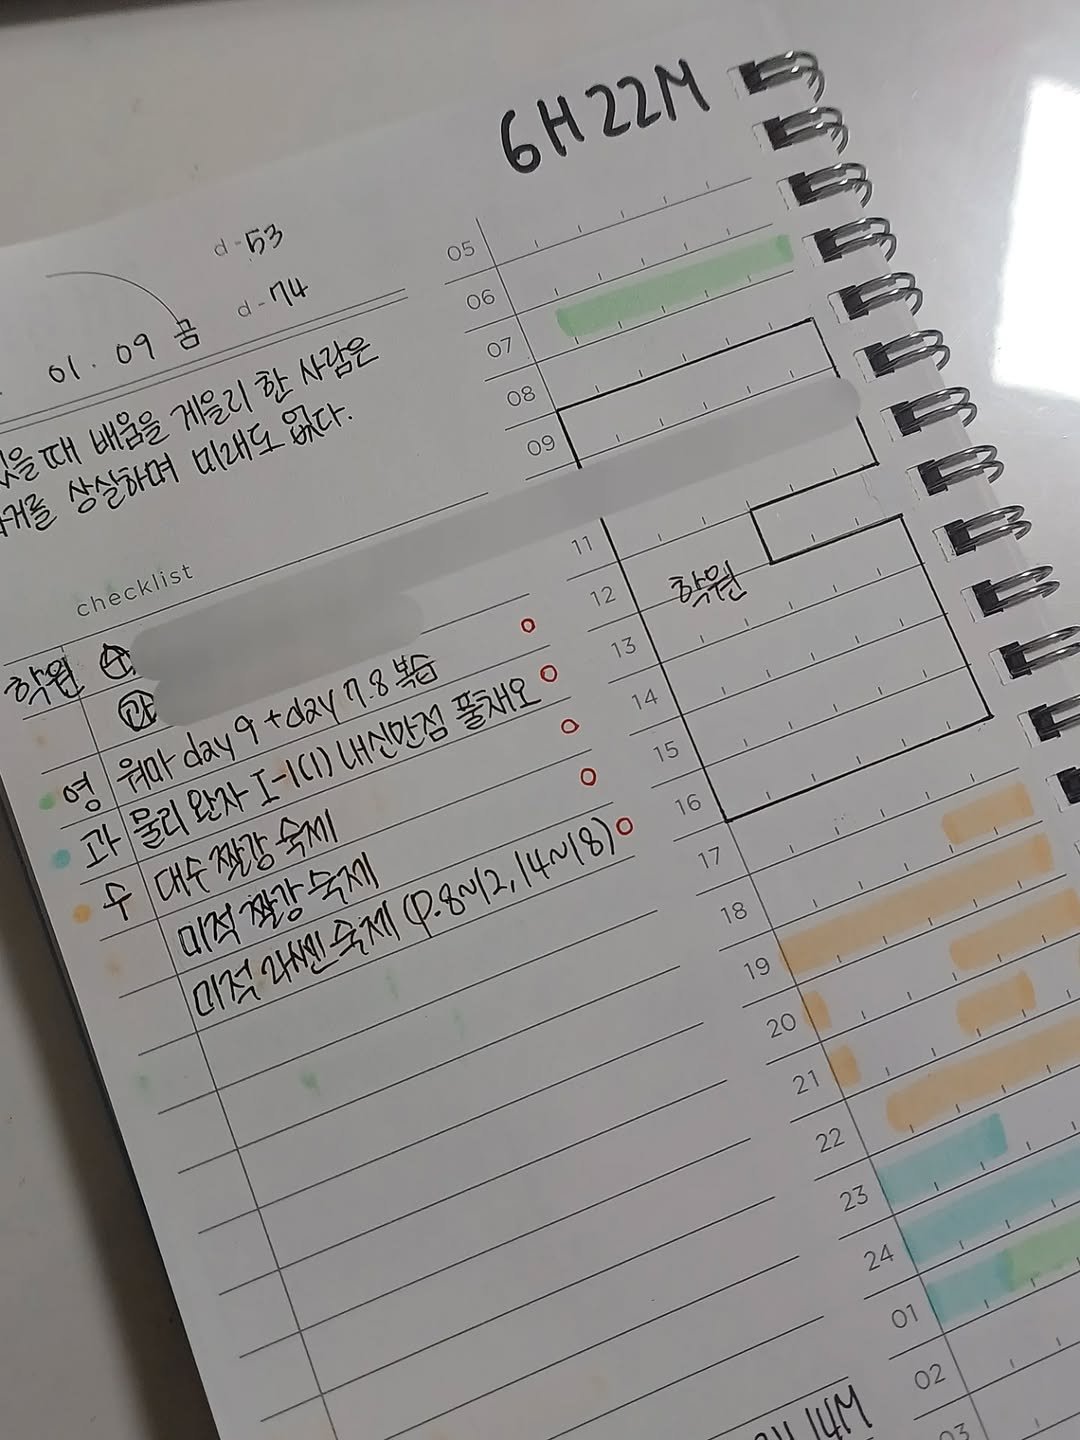 6H 22M
d-53
d-74
01. 09 금
있을 때 배움을 게을리 한 사람은
과거를 상실하며 미래도 없다.
checklist
학원 수
과
영 워마 day 9 + day 7.8 복습
과 물리 완자 I-1(1) 내신만점 풀채오
수 대수 짤강 숙제
미적 짤강 숙제
미적 라쎈 숙제 (p.8~12, 14~18)
05
06
07
08
09
11
12
학원
13
14
15
16
17
18
19
20
21
22
23
24
01
02
03
14M